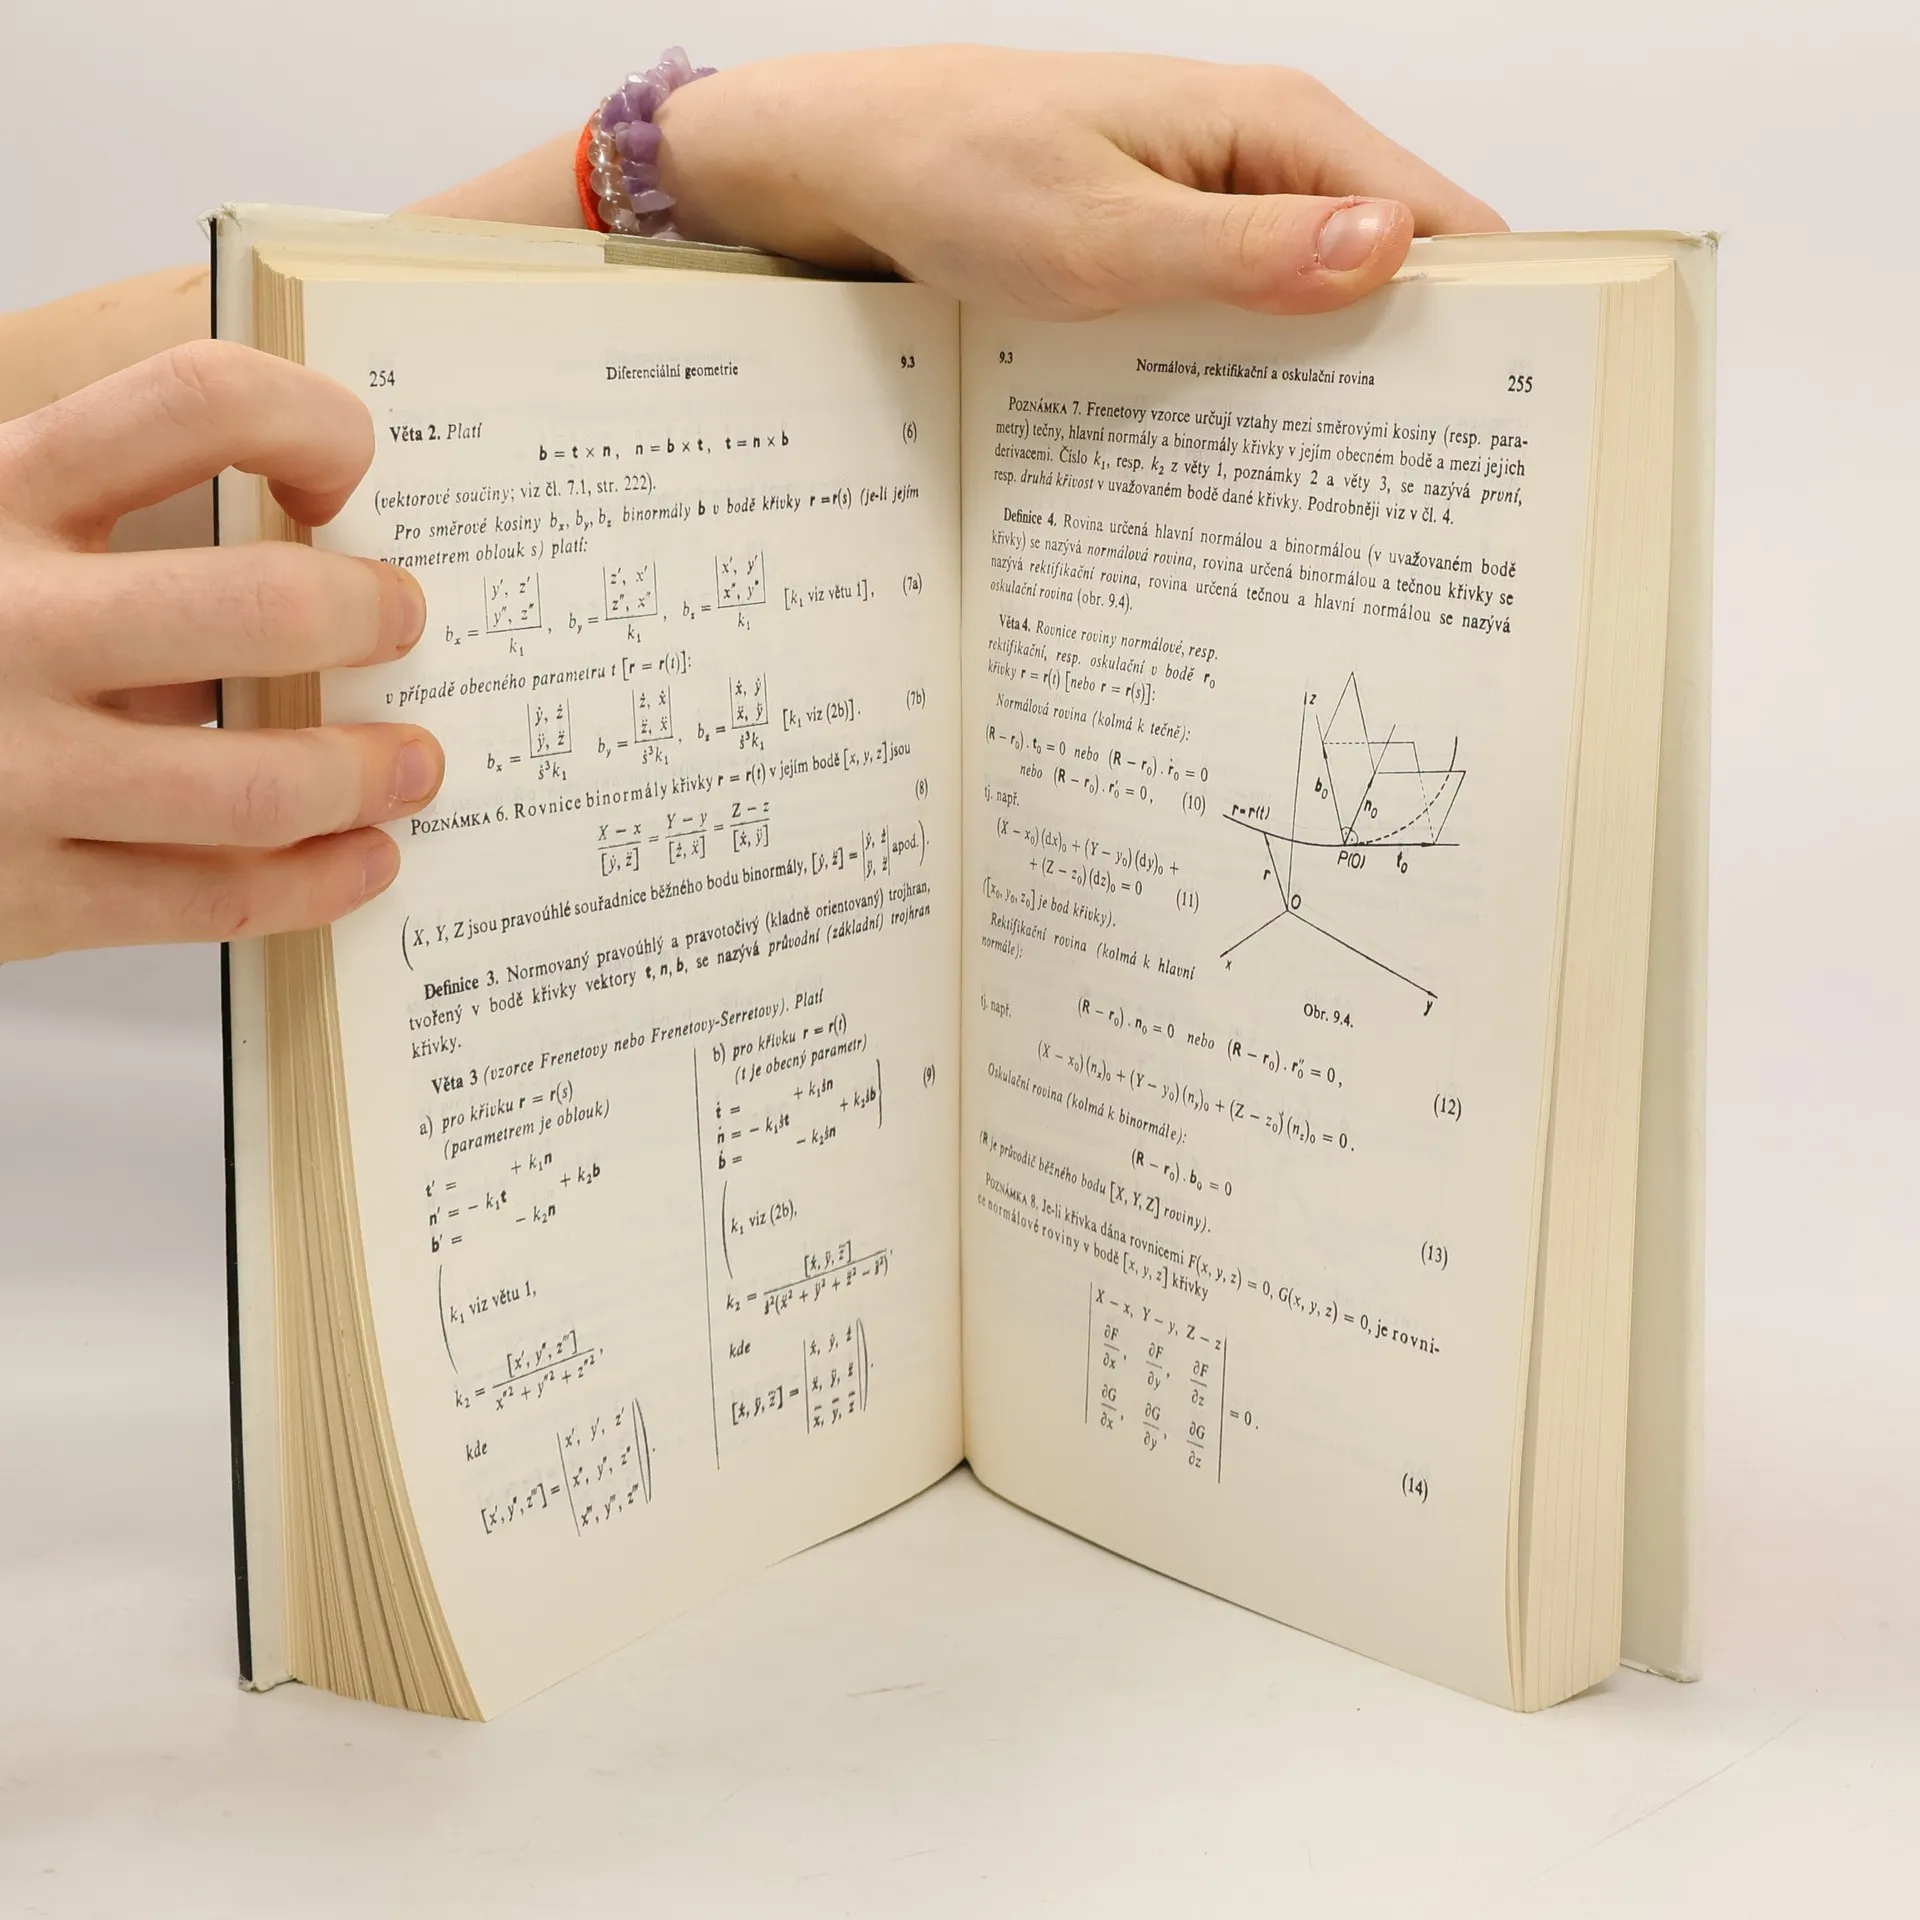 254 Diferenciální geometrie 9.3
Věta 2. Platí
b = t × n, n = b × t, t = n × b (6)
(vektorové součiny; viz čl. 7.1, str. 222).
Pro směrové kosiny bₓ, b_y, b_z binormály b v bodě křivky r = r(s) (je-li jejím
parametrem oblouk s) platí:
bₓ = |y′, z′; y″, z″| / k₁, b_y = |z′, x′; z″, x″| / k₁, b_z = |x′, y′; x″, y″| / k₁ [k₁ viz větu 1], (7a)
v případě obecného parametru t [r = r(t)]:
bₓ = |ẏ, ż; ÿ, z̈| / ṡ³k₁ b_y = |ż, ẋ; z̈, ẍ| / ṡ³k₁, b_z = |ẋ, ẏ; ẍ, ÿ| / ṡ³k₁ [k₁ viz (2b)]. (7b)
POZNÁMKA 6. Rovnice binormály křivky r = r(t) v jejím bodě [x, y, z] jsou
(X − x)/[ẏ, z̈] = (Y − y)/[ż, ẍ] = (Z − z)/[ẋ, ÿ] (8)
(X, Y, Z jsou pravoúhlé souřadnice běžného bodu binormály, [ẏ, z̈] = |ẏ, ż; ÿ, z̈| apod.).
Definice 3. Normovaný pravoúhlý a pravotočivý (kladně orientovaný) trojhran,
tvořený v bodě křivky vektory t, n, b, se nazývá průvodní (základní) trojhran
křivky.
Věta 3 (vzorce Frenetovy nebo Frenetovy-Serretovy). Platí
a) pro křivku r = r(s)
(parametrem je oblouk)
t′ = + k₁n
n′ = − k₁t + k₂b
b′ = − k₂n
(k₁ viz větu 1,
k₂ = [x′, y″, z‴] / (x″² + y″² + z″²),
kde
[x′, y″, z‴] = |x′, y′, z′; x″, y″, z″; x‴, y‴, z‴|).
b) pro křivku r = r(t)
(t je obecný parametr)
ṫ = + k₁ṡn
ṅ = − k₁ṡt + k₂ṡb
ḃ = − k₂ṡn (9)
(k₁ viz (2b),
k₂ = [ẋ, ÿ, z⃛] / ṡ²(ẍ² + ÿ² + z̈² − s̈²),
kde
[ẋ, ÿ, z⃛] = |ẋ, ẏ, ż; ẍ, ÿ, z̈; x⃛, y⃛, z⃛|).
9.3 Normálová, rektifikační a oskulační rovina 255
POZNÁMKA 7. Frenetovy vzorce určují vztahy mezi směrovými kosiny (resp. para-
metry) tečny, hlavní normály a binormály křivky v jejím obecném bodě a mezi jejich
derivacemi. Číslo k₁, resp. k₂ z věty 1, poznámky 2 a věty 3, se nazývá první,
resp. druhá křivost v uvažovaném bodě dané křivky. Podrobněji viz v čl. 4.
Definice 4. Rovina určená hlavní normálou a binormálou (v uvažovaném bodě
křivky) se nazývá normálová rovina, rovina určená binormálou a tečnou křivky se
nazývá rektifikační rovina, rovina určená tečnou a hlavní normálou se nazývá
oskulační rovina (obr. 9.4).
Věta 4. Rovnice roviny normálové, resp.
rektifikační, resp. oskulační v bodě r₀
křivky r = r(t) [nebo r = r(s)]:
Normálová rovina (kolmá k tečně):
(R − r₀) . t₀ = 0 nebo (R − r₀) . ṙ₀ = 0
nebo (R − r₀) . r₀′ = 0, (10)
tj. např.
(X − x₀)(dx)₀ + (Y − y₀)(dy)₀ +
+ (Z − z₀)(dz)₀ = 0 (11)
([x₀, y₀, z₀] je bod křivky).
Rektifikační rovina (kolmá k hlavní
normále):
z
b₀
n₀
r=r(t)
P(0)
t₀
r
O
x
y
Obr. 9.4.
(R − r₀) . n₀ = 0 nebo (R − r₀) . r₀″ = 0,
tj. např.
(X − x₀)(nₓ)₀ + (Y − y₀)(n_y)₀ + (Z − z₀)(n_z)₀ = 0. (12)
Oskulační rovina (kolmá k binormále):
(R − r₀) . b₀ = 0 (13)
(R je průvodič běžného bodu [X, Y, Z] roviny).
POZNÁMKA 8. Je-li křivka dána rovnicemi F(x, y, z) = 0, G(x, y, z) = 0, je rovni-
ce normálové roviny v bodě [x, y, z] křivky
|X − x, Y − y, Z − z
∂F/∂x, ∂F/∂y, ∂F/∂z
∂G/∂x, ∂G/∂y, ∂G/∂z| = 0. (14)